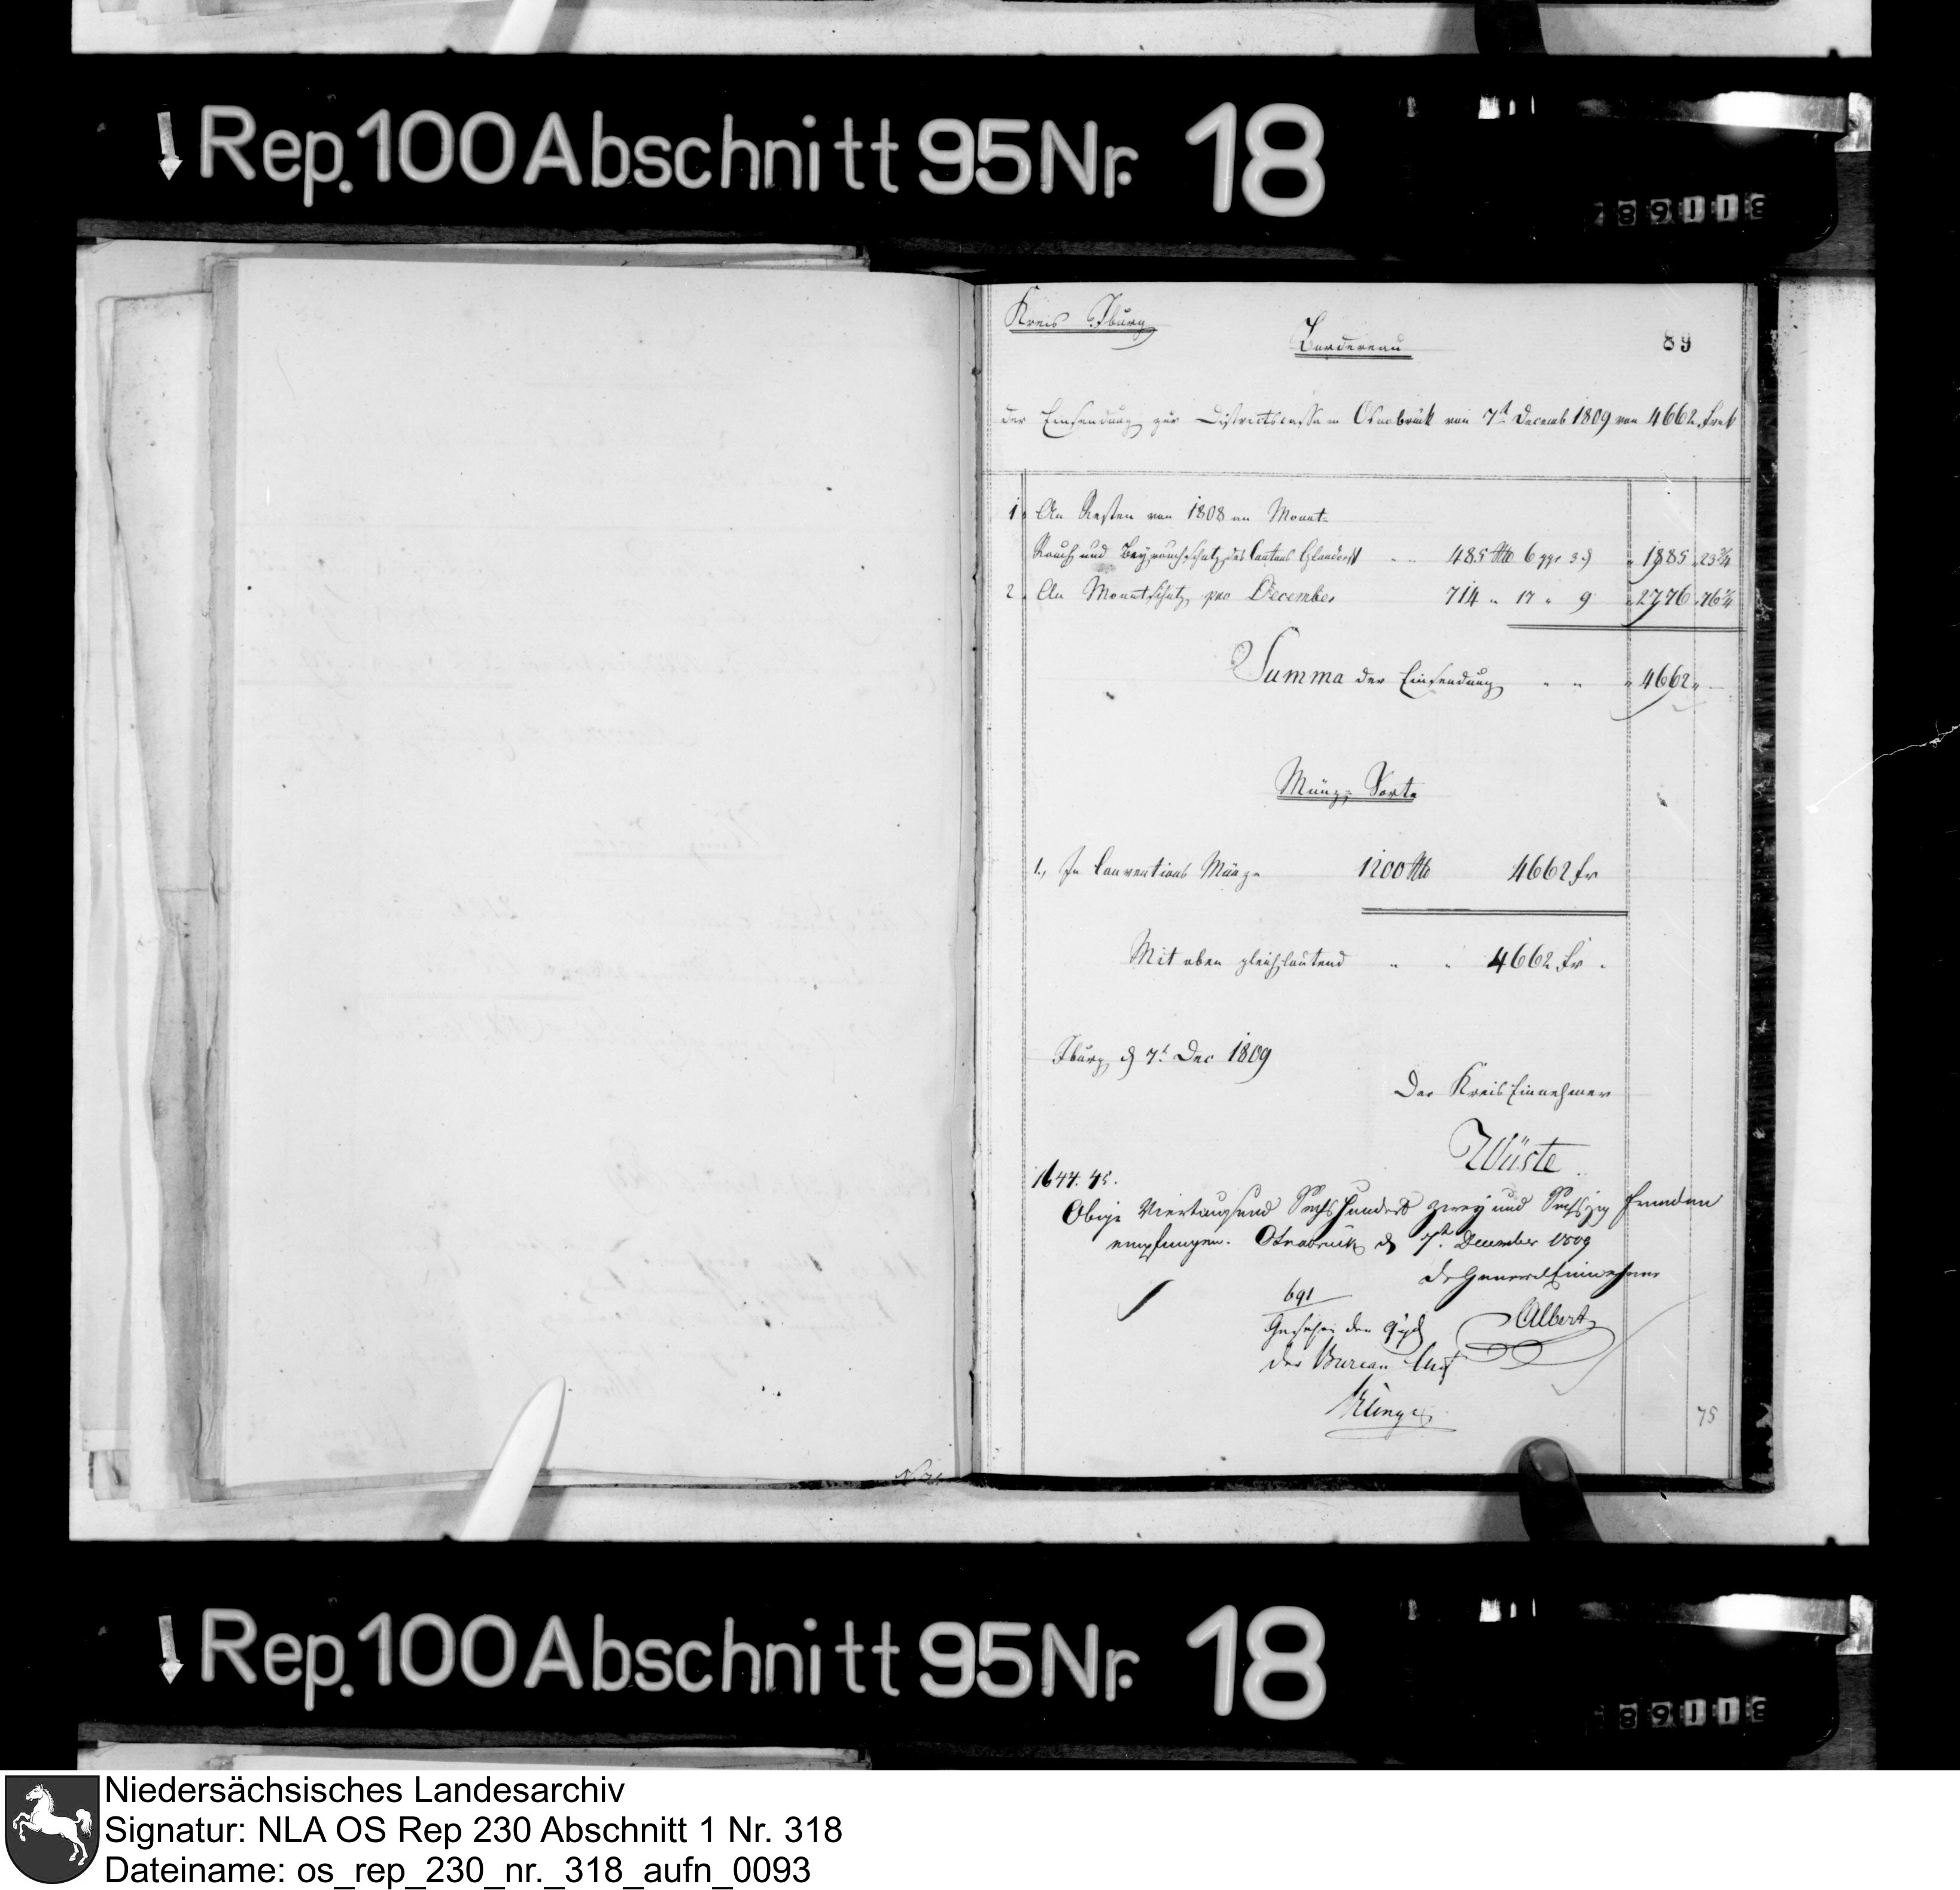 Rep. 100 Abschnitt 95 Nr. 18
Kreis Iburg
Bordereau
89
der Einsendung zur Districtscasse in Osnabrück vom 7t Decemb 1809 von 4662 Frcs
1. An Resten von 1808 an Monat-
Rauch und Beyrauchschatz des Cantons Glandorff " " 485 Rtlr 6 ggr 3 d " 1885 " 23 3/4
2. An Monatschatz pro December 714 " 17 " 9 " 2776 " 76 1/4
Summa der Einsendung " " " 4662 "
Münz-Sorte
1., In Conventions Münze 1200 Rtlr 4662 fr
Mit oben gleichlautend " " 4662 Fr.
Iburg d 7t Dec 1809
Der Kreis Einnehmer
Wüste
1644. 45.
Obige Viertausend Sechshundert zwey und Sechszig Franken
empfangen. Osnabrück d 7t December 1809
Der General Einnehmer
Albert
691
Gesehen den
Der Bureau Chef
Klinge
75
Rep. 100 Abschnitt 95 Nr. 18
Niedersächsisches Landesarchiv
Signatur: NLA OS Rep 230 Abschnitt 1 Nr. 318
Dateiname: os_rep_230_nr._318_aufn_0093